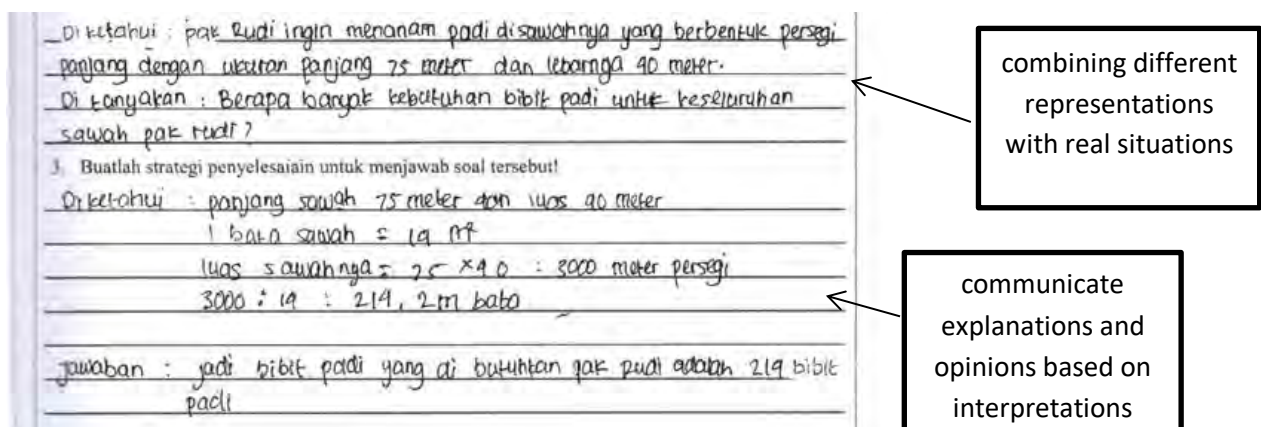 Diketahui : pak Rudi ingin menanam padi disawahnya yang berbentuk persegi
panjang dengan ukuran panjang 75 meter dan lebarnya 40 meter.
Di tanyakan : Berapa banyak kebutuhan bibit padi untuk keseluruhan
sawah pak rudi?
3. Buatlah strategi penyelesaiain untuk menjawab soal tersebut!
Diketahui : panjang sawah 75 meter dan luas 40 meter
1 bata sawah = 14 m²
luas sawahnya = 75 × 40 : 3000 meter persegi
3000 : 14 : 214, 2 m bata
Jawaban : jadi bibit padi yang di butuhkan pak rudi adalah 214 bibit
padi
combining different
representations
with real situations
communicate
explanations and
opinions based on
interpretations